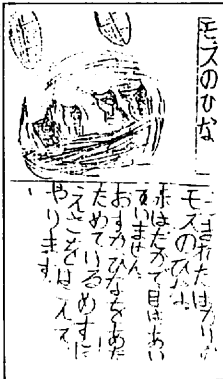 モスのひな
うまれたばかりの
モスのひなは
赤はだかで目はあい
ていません。
おすがひなをあた
ためているめすに
えさをはこんで
やります。